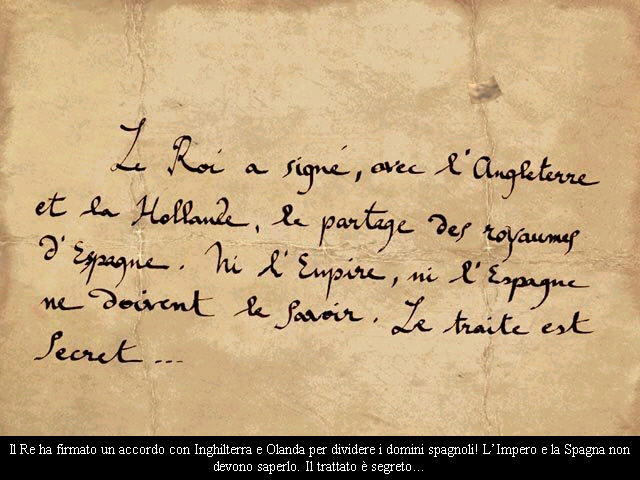 Le Roi a signé, avec l'Angleterre
et la Hollande, le partage des royaumes
d'Espagne. Ni l'Empire, ni l'Espagne
ne doivent le savoir. Le traité est
Secret ...
Il Re ha firmato un accordo con Inghilterra e Olanda per dividere i domini spagnoli! L'Impero e la Spagna non
devono saperlo. Il trattato è segreto...